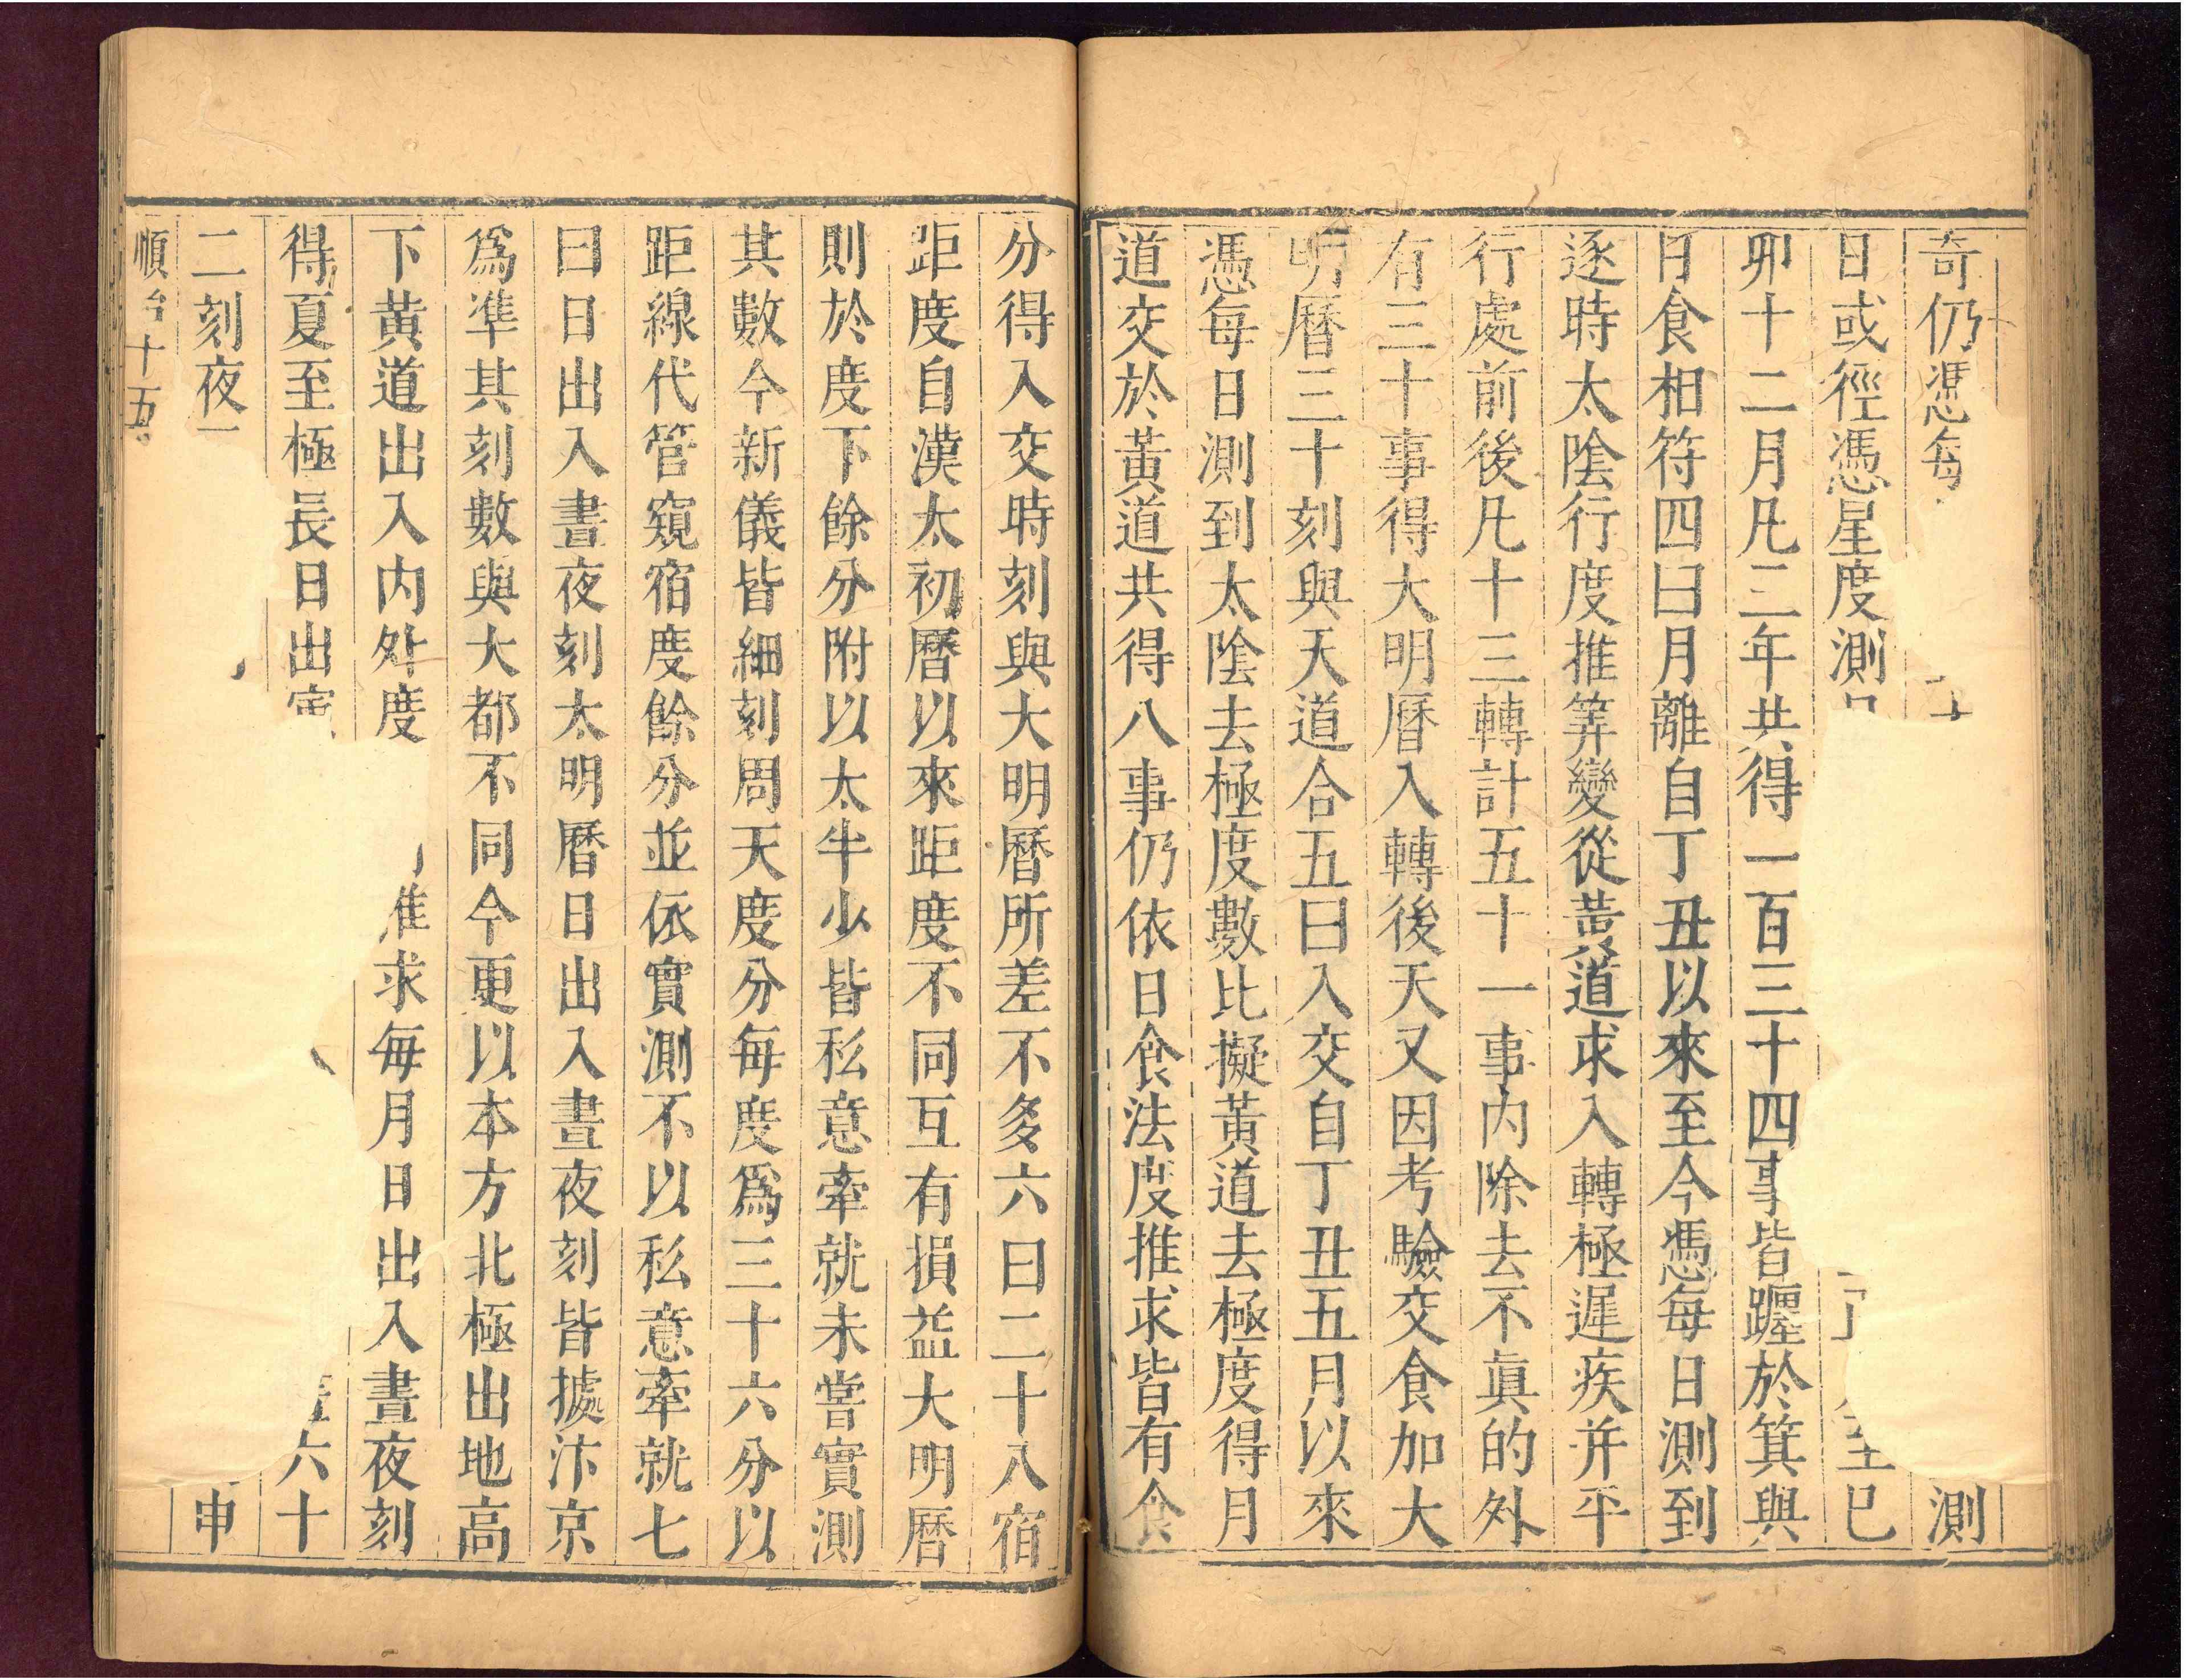 奇仍憑每測
日或徑憑星度測巳
卯十二月凡三年共得一百三十四事皆躔於箕與
日食相符四曰月離自丁丑以來至今憑每日測到
逐時太陰行度推筭變從黃道求入轉極遲疾并平
行處前後凡十三轉計五十一事内除去不眞的外
有三十事得大明曆入轉後天又因考驗交食加大
明曆三十刻與天道合五曰入交自丁丑五月以來
憑每日測到太陰去極度數比擬黃道去極度得月
道交於黃道共得八事仍依日食法度推求皆有食
分得入交時刻與大明曆所差不多六曰二十八宿
距度自漢太初曆以來距度不同互有損益大明曆
則於度下餘分附以太半少皆私意牽就未嘗實測
其數今新儀皆細刻周天度分每度爲三十六分以
距線代管窺宿度餘分並依實測不以私意牽就七
曰日出入晝夜刻太明曆日出入晝夜刻皆據汴京
爲準其刻數與大都不同今更以本方北極出地高
下黃道出入内外度推求每月日出入晝夜刻
得夏至極長日出寅六十
二刻夜申
順台十五